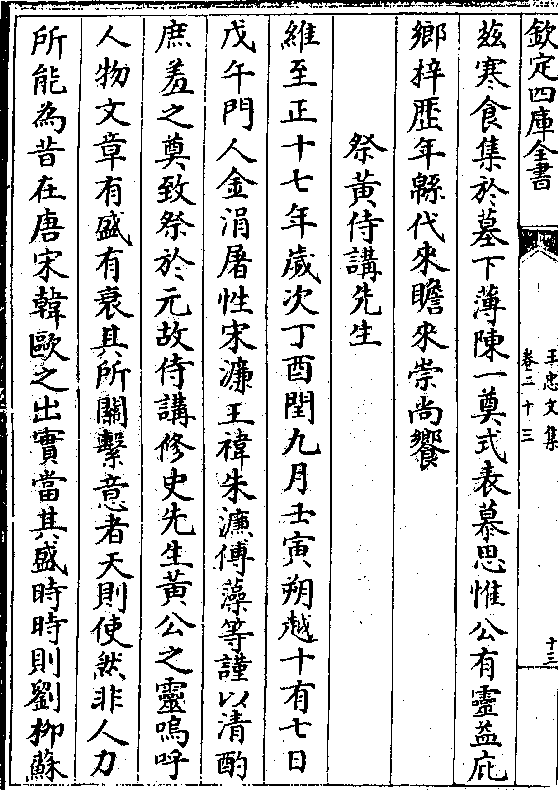 欽定四庫全書
王忠文集
卷二十三
十三
茲寒食集於墓下薄陳一奠式表慕思惟公有靈益庇
鄉梓歴年緜代來瞻來崇尚饗
祭黄侍講先生
維至正十七年歲次丁酉閏九月壬寅朔越十有七日
戊午門人金涓屠性宋濂王禕朱濂傅藻等謹以清酌
庶羞之奠致祭於元故侍講修史先生黄公之靈嗚呼
人物文章有盛有衰其所關繫意者天則使然非人力
所能為昔在唐宋韓歐之出實當其盛時時則劉柳蘇